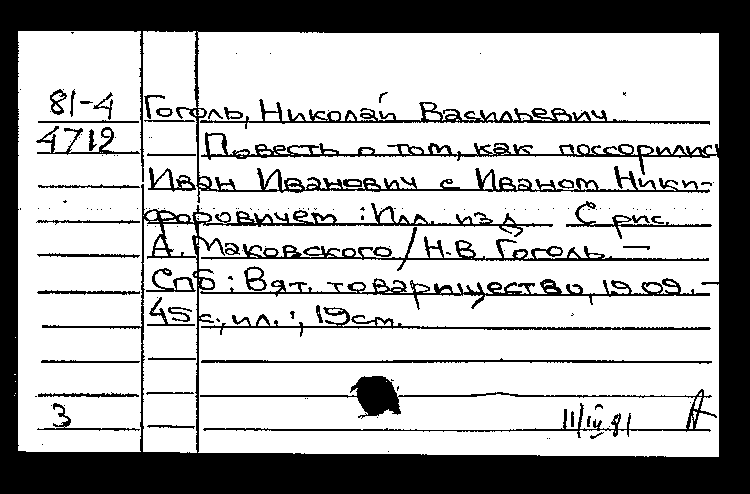 81-4 Гоголь, Николай Васильевич.
4712 Повесть о том, как поссорились
Иван Иванович с Иваном Ники-
форовичем : Илл. изд. С рис.
А. Маковского / Н.В. Гоголь. —
Спб : Вят. товарищество, 1909. —
45 с., ил. ; 19 см.
3 11/IV 81